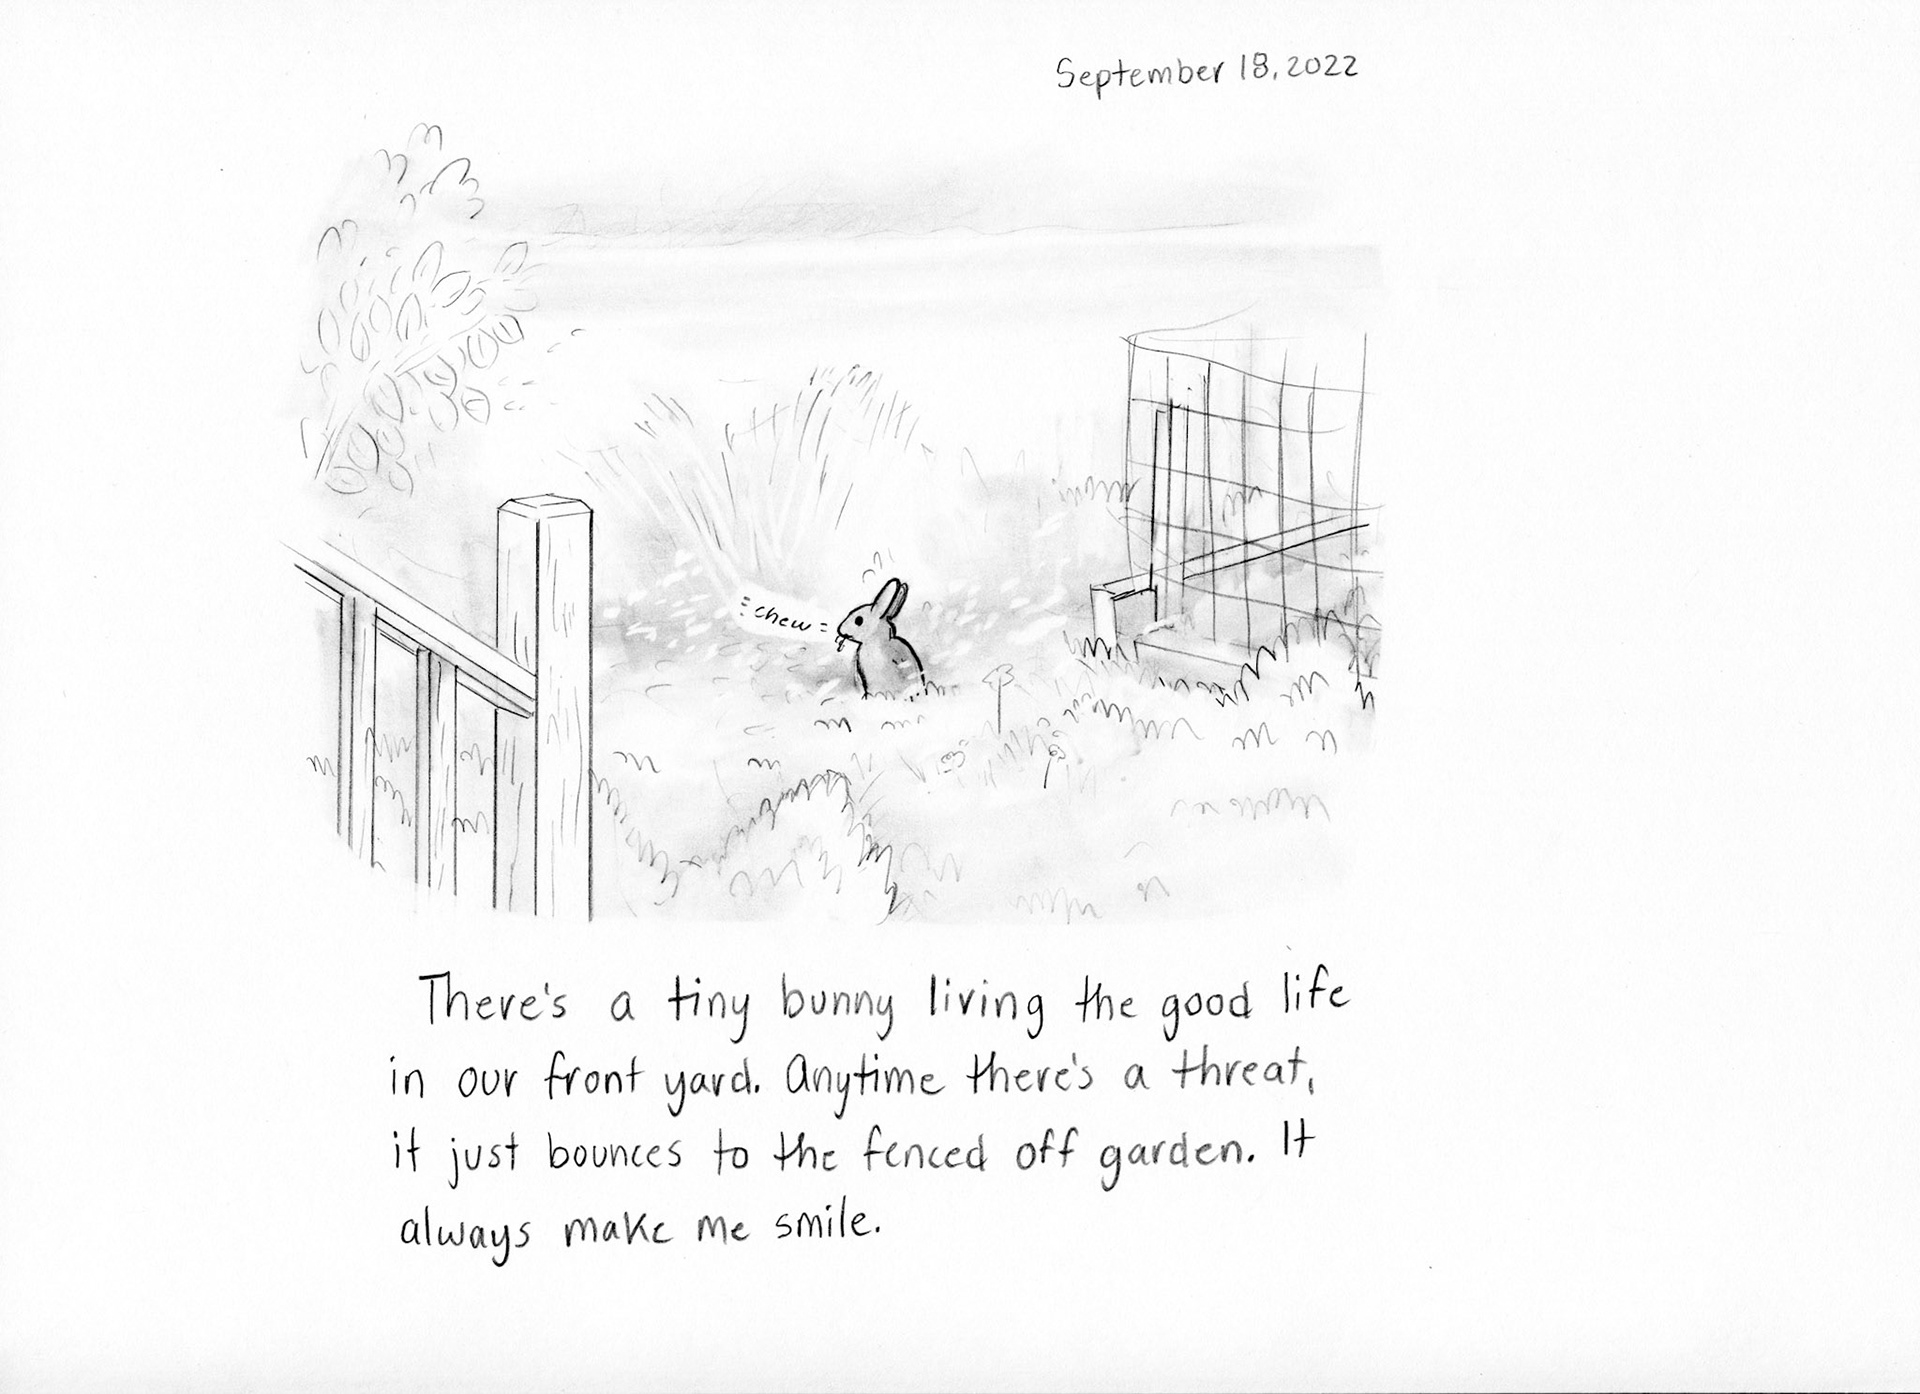 September 18, 2022
chew
There's a tiny bunny living the good life
in our front yard. Anytime there's a threat,
it just bounces to the fenced off garden. It
always make me smile.